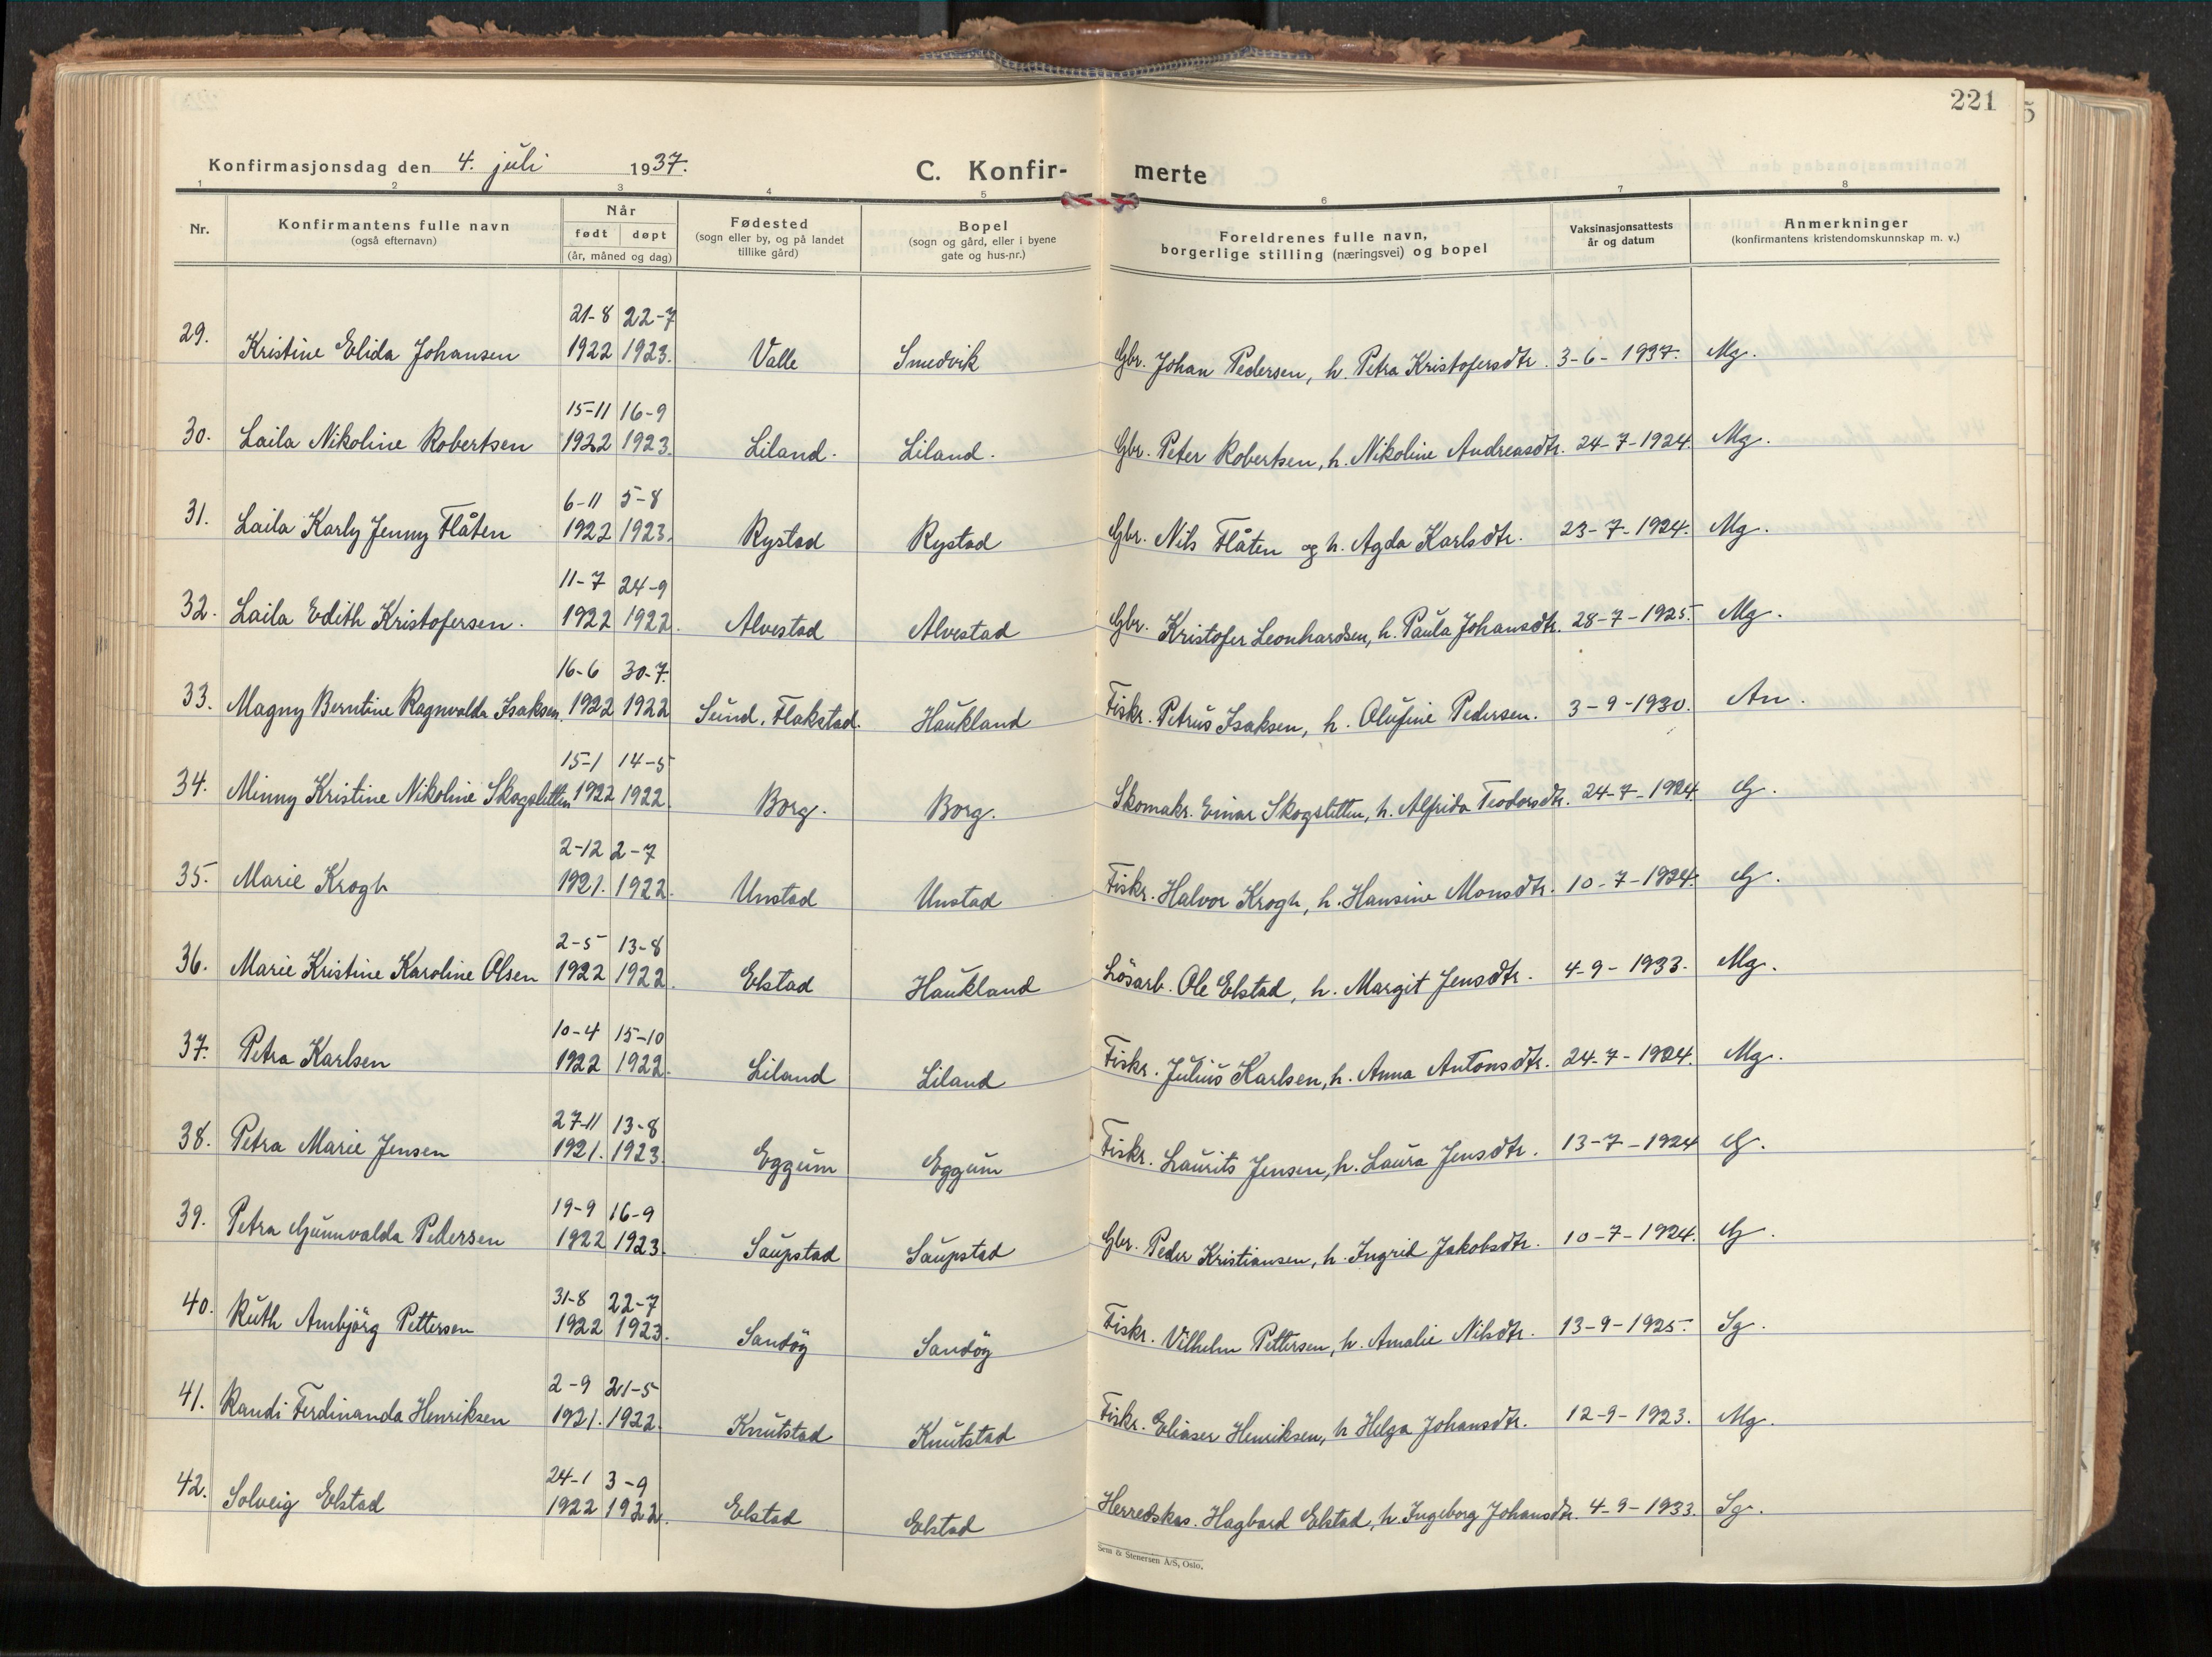 221
Konfirmasjonsdag den 4. juli 1937. C. Konfir- merte
1 2 3 4 5 6 7 8
Nr. Konfirmantens fulle navn (også efternavn) Når født døpt (år, måned og dag) Fødested (sogn eller by, og på landet tillike gård) Bopel (sogn og gård, eller i byene gate og hus-nr.) Foreldrenes fulle navn, borgerlige stilling (næringsvei) og bopel Vaksinasjonsattests år og datum Anmerkninger (konfirmantens kristendomskunnskap m. v.)
21-8 22-7
29. Kristine Elida Johansen 1922 1923. Valle Smedvik Gbr. Johan Pedersen, h. Petra Kristofersdtr. 3-6-1937. Mg.
15-11 16-9
30. Laila Nikoline Robertsen 1922 1923. Liland. Liland. Gbr. Peter Robertsen, h. Nikoline Andreasdtr. 24-7-1924. Mg.
6-11 5-8
31. Laila Karly Jenny Flåten 1922 1923. Rystad Rystad Gbr. Nils Flåten og h. Agda Karlsdtr. 23-7-1924. Mg.
11-7 24-9
32. Laila Edith Kristofersen. 1922 1922. Alvestad Alvestad Gbr. Kristofer Leonhardsen, h. Paula Johansdtr. 28-7-1925. Mg.
16-6 30-7.
33. Magny Berntine Ragnvalda Isaksen. 1922 1922 Sund, Flakstad. Haukland Fiskr. Petrus Isaksen, h. Olufine Pedersen. 3-9-1930. An.
15-1 14-5
34. Minny Kristine Nikoline Skogsletten 1922 1922. Borg. Borg. Skomakr. Einar Skogsletten, h. Alfrida Teodorsdtr. 24-7-1924 G.
2-12 2-7
35. Marie Krogh 1921. 1922. Unstad Unstad Fiskr. Halvor Krogh, h. Hansine Monsdtr. 10-7-1924. G.
2-5 13-8
36. Marie Kristine Karoline Olsen 1922 1922. Elstad Haukland Løsarb. Ole Elstad, h. Margit Jensdtr. 4-9-1933. Mg.
10-4 15-10
37. Petra Karlsen 1922 1922. Liland Liland Fiskr. Julius Karlsen, h. Anna Antonsdtr. 24-7-1924. Mg.
27-11 13-8
38. Petra Marie Jensen 1921. 1923. Eggum Eggum Fiskr. Laurits Jensen, h. Laura Jensdtr. 13-7-1924 G.
19-9 16-9
39. Petra Gunnvalda Pedersen 1922 1923. Saupstad Saupstad Gbr. Peder Kristiansen, h. Ingrid Jakobsdtr. 10-7-1924. G.
31-8 22-7
40. Ruth Arnbjörg Pettersen 1922 1923. Sandöy Sandöy Fiskr. Vilhelm Pettersen, h. Amalie Nilsdtr. 13-9-1925. Sg.
2-9 21-5
41. Randi Ferdinanda Henriksen 1921. 1922. Knutstad Knutstad Fiskr. Eliaser Henriksen, h Helga Johansdtr. 12-9-1923. Mg.
24-1 3-9
42. Solveig Elstad 1922 1922. Elstad Elstad Herredskas. Hagbard Elstad, h. Ingeborg Johansdtr. 4-9-1933. Sg.
Sem & Stenersen A/S, Oslo.